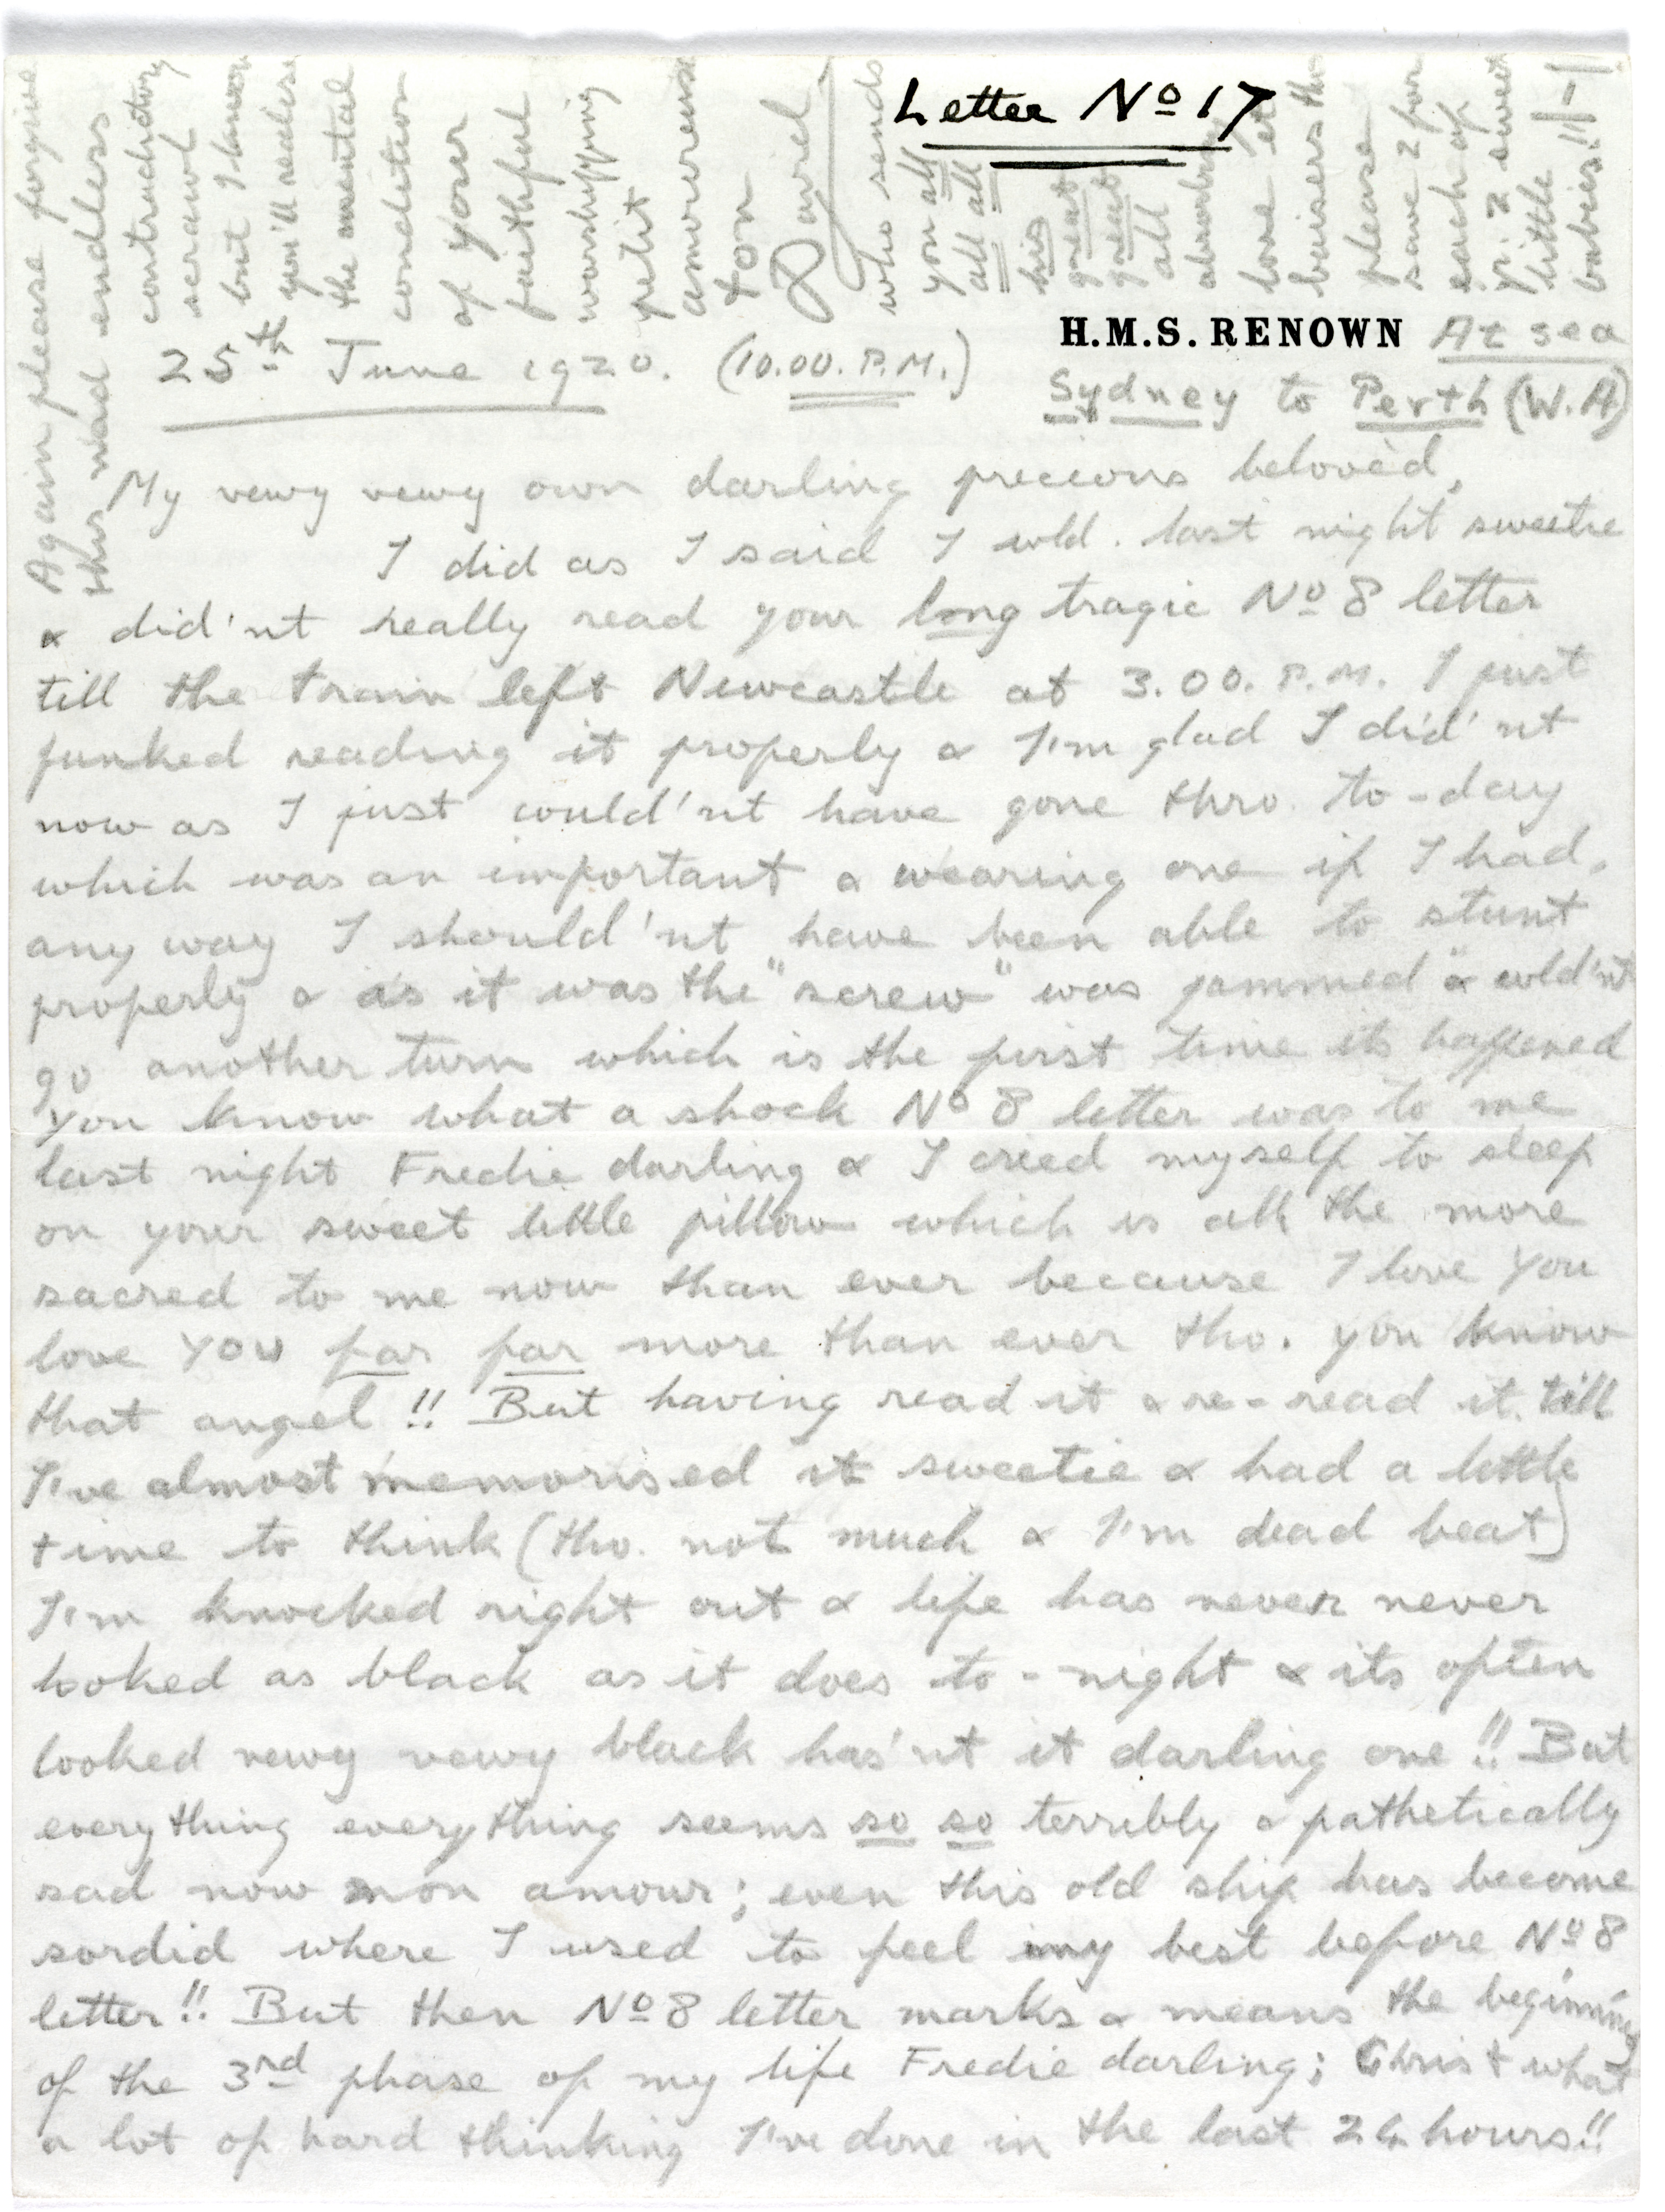 Letter Nº 17
H.M.S. RENOWN At sea
25th June 1920. (10.00. P.M.)
Sydney to Perth (W.A)
My vewy vewy own darling precious belovèd,
I did as I said I wld. last night sweetie
& did'nt really read your long tragic Nº 8 letter
till the train left Newcastle at 3.00. P.M. I just
funked reading it properly & I'm glad I did'nt
now as I just could'nt have gone thro. to-day
which was an important & wearing one if I had,
any way I should'nt have been able to stunt
properly & as it was the "screw" was jammed & wld'nt
go another turn which is the first time its happened
You know what a shock Nº 8 letter was to me
last night Fredie darling & I cried myself to sleep
on your sweet little pillow which is all the more
sacred to me now than ever because I love You
love YOU far far more than ever tho. you know
that angel!! But having read it & re-read it till
I've almost memorised it sweetie & had a little
time to think (tho. not much & I'm dead beat)
I'm knocked right out & life has never never
looked as black as it does to-night & its often
looked vewy vewy black has'nt it darling one!! But
everything everything seems so so terribly & pathetically
sad now mon amour; even this old ship has become
sordid where I used to feel my best before Nº 8
letter!! But then Nº 8 letter marks & means the beginning
of the 3rd phase of my life Fredie darling; Christ what
a lot of hard thinking I've done in the last 24 hours!!
Again please forgive
this mad endless
contradictory
scrawl
but I know
you'll realise
the mental
condition
of your
faithful
worshipping
petit
amoureux
ton
David
who sends
you all
all all
his
great
great
all
absorbing
love et
baisers tho
please
save 2 for
each of
yr. 2 sweet
little
babies!!